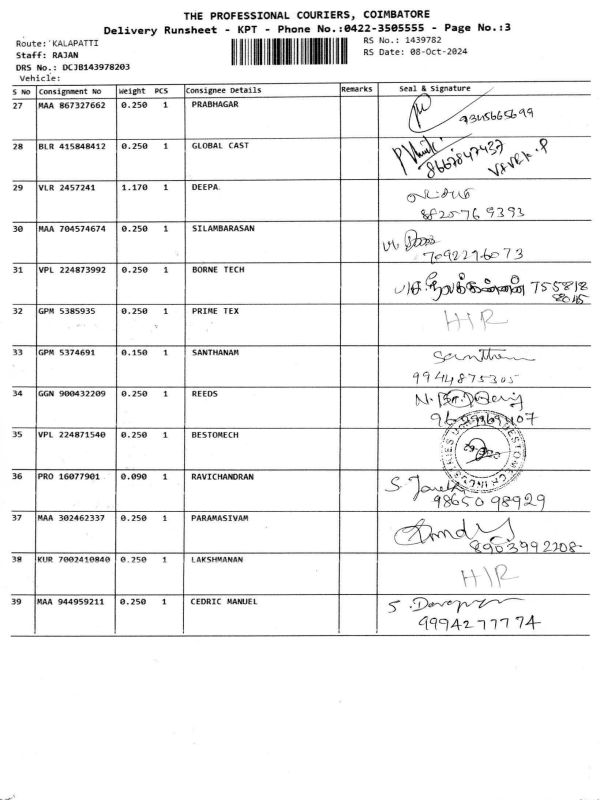 THE PROFESSIONAL COURIERS, COIMBATORE
Delivery Runsheet - KPT - Phone No.:0422-3505555 - Page No.:3
Route: KALAPATTI RS No.: 1439782
Staff: RAJAN RS Date: 08-Oct-2024
DRS No.: DCJB143978203
Vehicle:
S No Consignment No Weight PCS Consignee Details Remarks Seal & Signature
27 MAA 867327662 0.250 1 PRABHAGAR 9345665699
28 BLR 415848412 0.250 1 GLOBAL CAST 8667847437
29 VLR 2457241 1.170 1 DEEPA
8825769393
30 MAA 704574674 0.250 1 SILAMBARASAN
7092296073
31 VPL 224873992 0.250 1 BORNE TECH 755818
8045
32 GPM 5385935 0.250 1 PRIME TEX H/R
33 GPM 5374691 0.150 1 SANTHANAM
9944875305
34 GGN 900432209 0.250 1 REEDS
35 VPL 224871540 0.250 1 BESTOMECH
36 PRO 16077901 0.090 1 RAVICHANDRAN
9865098929
37 MAA 302462337 0.250 1 PARAMASIVAM
8903992208
38 KUR 7002410840 0.250 1 LAKSHMANAN H/R
39 MAA 944959211 0.250 1 CEDRIC MANUEL
9994277774